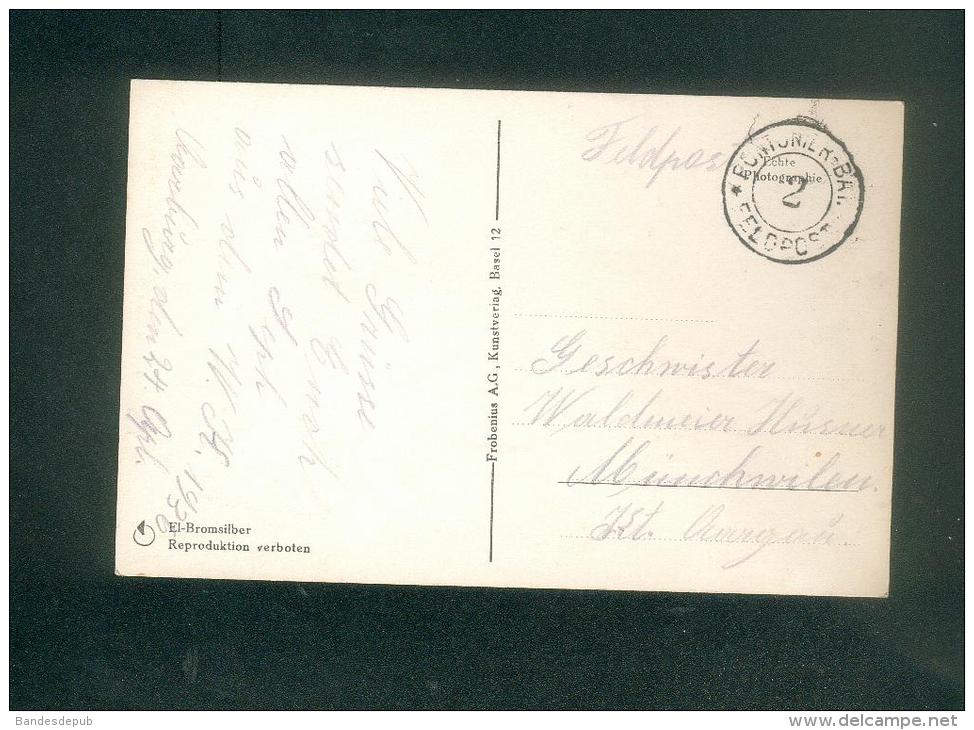 Viele Grüsse
sendet Euch
allen Sph
aus dem W. K.
den 24. Apl. 1936
El-Bromsilber
Reproduktion verboten
Frobenius A.G., Kunstverlag, Basel 12
Feldpost
Echte
Photographie
PONTONIER-BAT.
2
* FELDPOST
Geschwister
Waldmeier Husner
Münchwilen.
Kt. Aargau.
Bandesdepub
www.delcampe.net